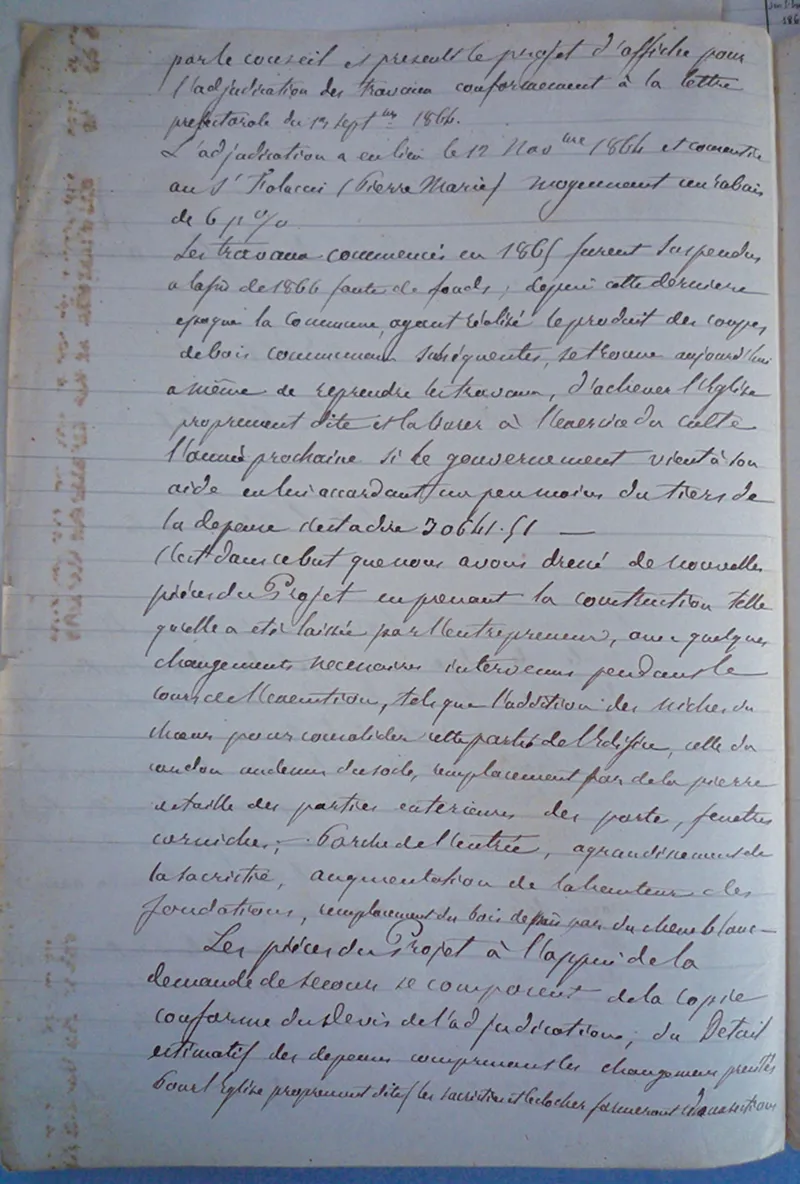 par le conseil et présenté le projet d'affiche pour
l'adjudication des travaux conformement à la lettre
prefectorale du 13 sept bre 1864.
L'adjudication a eu lieu le 12 Nov bre 1864 et consentie
au S r (Pierre Marie) moyennant un rabais
de 6 p %
Les travaux commencés en 1865 furent suspendus
a la fin de 1866 faute de fonds ; depuis cette derniere
epoque la Commune, ayant réalisé le produit des coupes
de bois communaux subséquentes, se trouve aujourd'hui
a même de reprendre les travaux, d'achever l'Eglise
proprement dite et la livrer à l'exercice du culte
l'année prochaine si le gouvernement vient à son
aide en lui accordant un peu moins du tiers de
la depense c'est a dire 30641.51 —
C'est dans ce but que nous avons dressé de nouvelles
pièces du Projet en prenant la construction telle
qu'elle a été laissée par l'entrepreneur, avec quelques
changements necessaires intervenus pendant le
cours de l'execution, tels que l'addition des niches du
chœur pour consolider cette partie de l'Edifice, celle du
cordon au dessus du socle, remplacement par de la pierre
de taille des parties exterieures des porte, fenêtres
corniches, Porche de l'entrée, agrandissement de
la sacristie, augmentation de la hauteur des
fondations, remplacement du bois de pin par du chene blanc —
Les pièces du Projet à l'appui de la
demande de secours se composent de la Copie
conforme du Devis de l'adjudication ; du Détail
estimatif des depenses comprenant les changements precités
Pour l'Eglise proprement dite (les sacristies et le clocher formeront deux sections